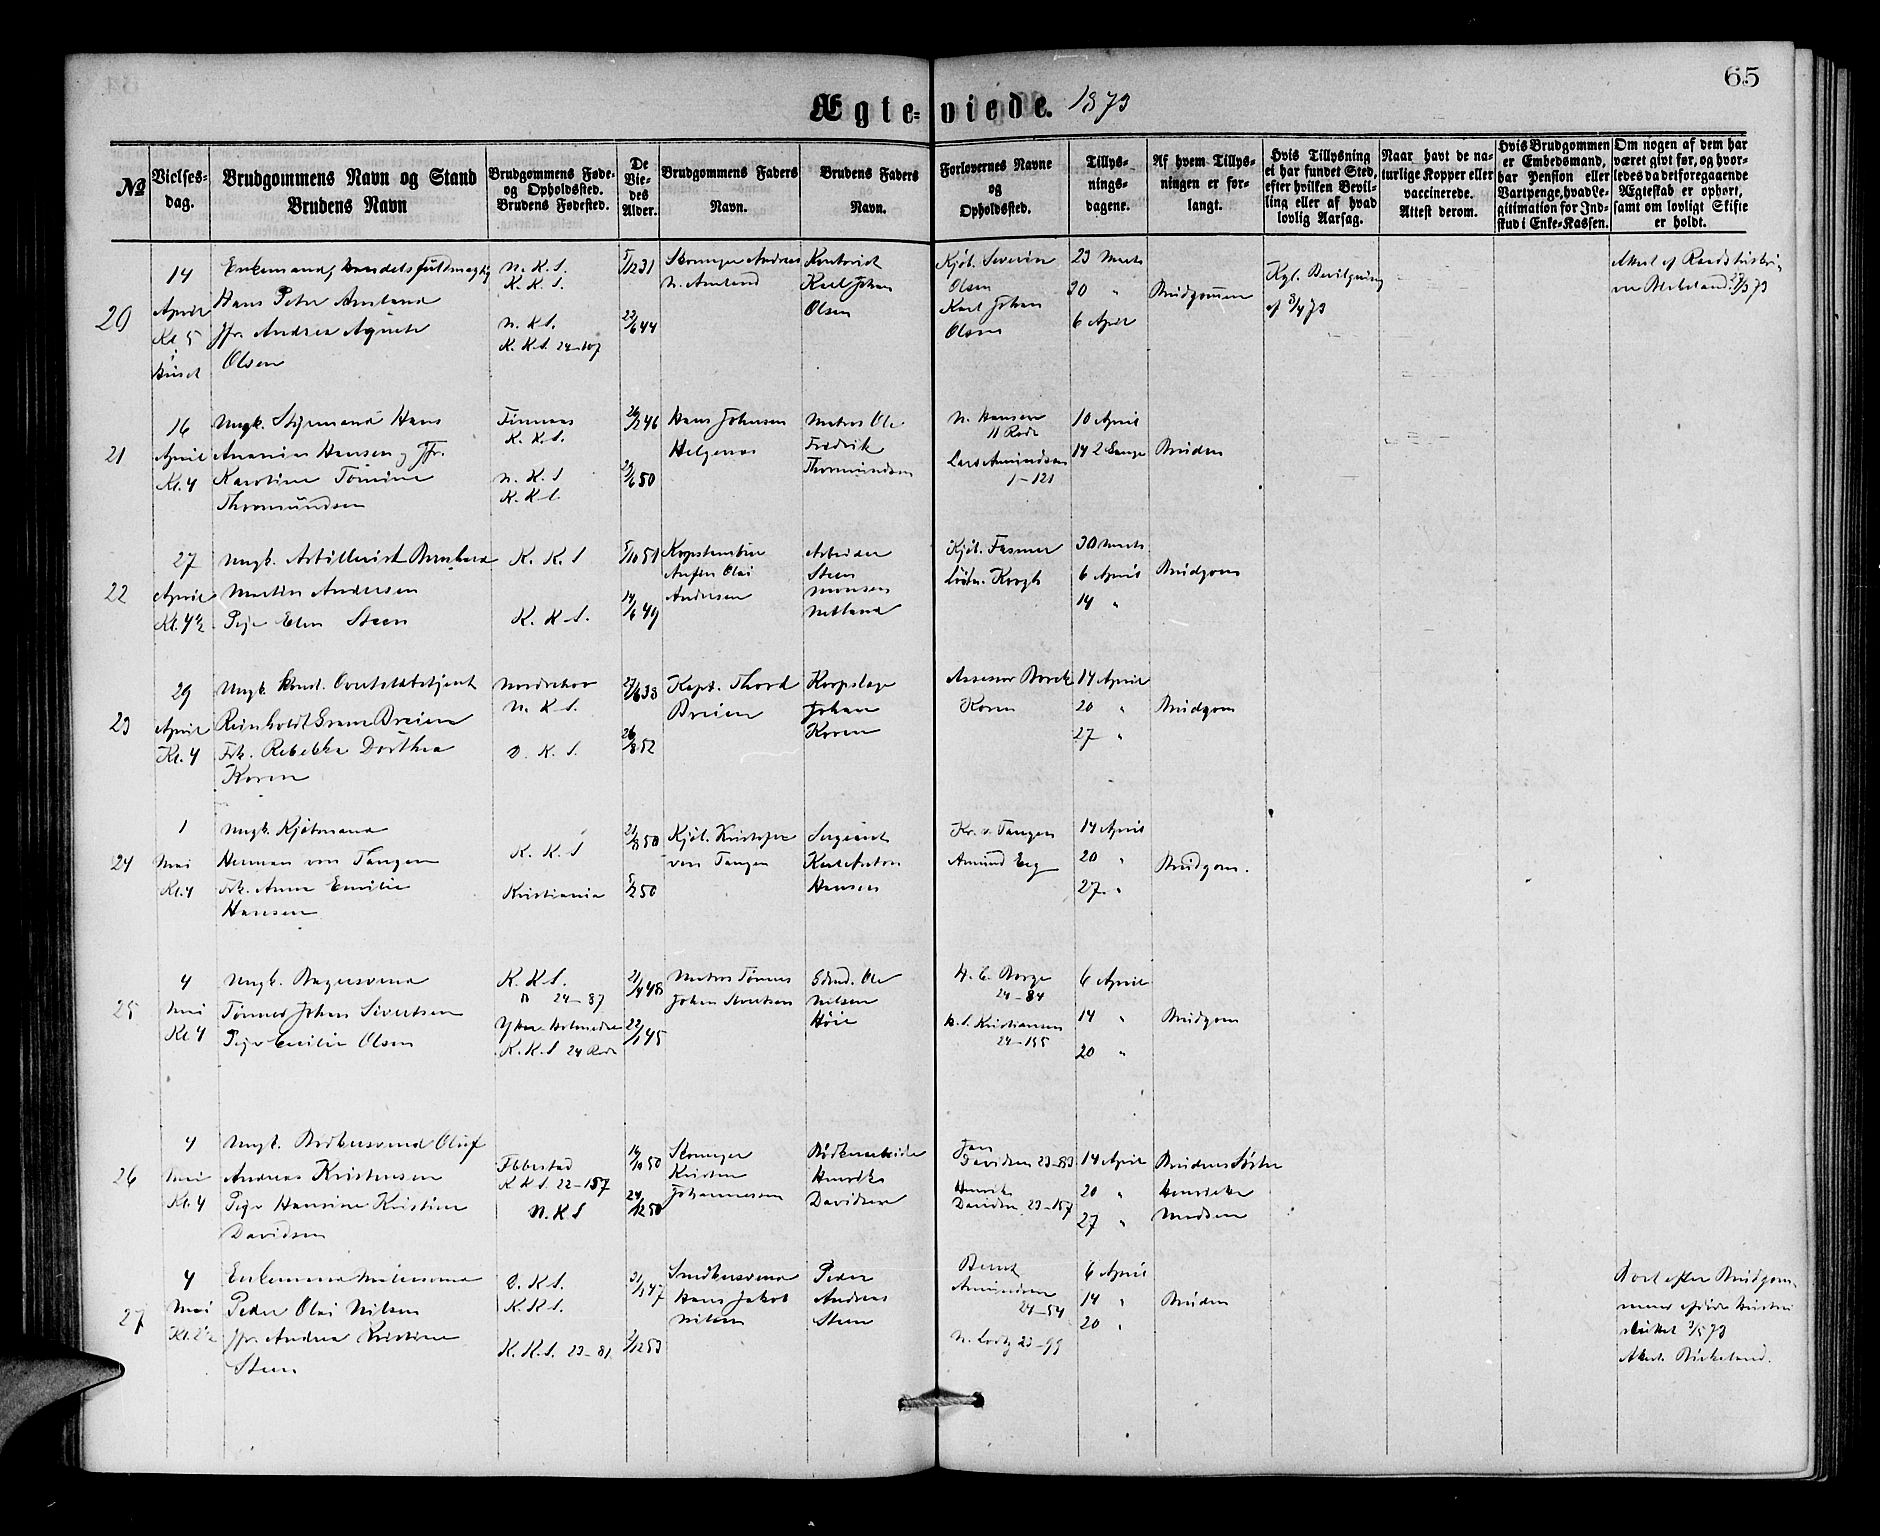 65
Ægte-viede. 1873
№
Vielses-
dag.
Brudgommens Navn og Stand
Brudens Navn
Brudgommens Føde-
og Opholdssted.
Brudens Fødested.
De
Vie-
des
Alder.
Brudgommens Faders
Navn.
Brudens Faders
Navn.
Forlovernes Navne
og
Opholdssted.
Tillys-
nings-
dagene.
Af hvem Tillys-
ningen er for-
langt.
Hvis Tillysning
ei har fundet Sted,
efter hvilken Bevil-
ling eller af hvad
lovlig Aarsag.
Naar havt de na-
turlige Kopper eller
vaccinerede.
Attest derom.
Hvis Brudgommen
er Embedsmand,
har Pension eller
Vartpenge, hvad Le-
gitimation for Ind-
skud i Enke-Kassen.
Om nogen af dem har
været givt før, og hvor-
ledes da det foregaaende
Ægteskab er ophørt,
samt om lovligt Skifte
er holdt.
20
14
April
Kl. 5
Hans Peter
Jfr. Andrea
Olsen
N. K. S.
K. K. S.
N. K. S.
K. K. S. 24-107
5/12 31
22/6 44
Karl Johan
Olsen
Kjøb. Severin
Olsen
Karl Johan
Olsen
23 Marts
30 "
6 April
Brudgommen
Kgl. Bevilgning
af 8/4 73
21
16
April
Kl. 4
Ungk. Styrmand Hans
Ananias Hansen og Jfr.
Karoline Tomine
Thormundsen
K. K. S.
N. K. S.
K. K. S.
26/12 46
29/6 50
Hans Johansen
Helgenæs
Matros Ole
Fredrik
Thormundsen
N. Hansen
11 Rode
Lars Amundsen
1-121
10 April
14 2 Gange
Bruden
22
27
April
Kl. 4½
Ungk. Artillerist Bernhard
Martin Andersen
Pige Elen Steen
K. K. S.
K. K. S.
5/10 51
14/6 49
Andersen
Arbeider
Steen
Monsen
Netland
Kjøb. Fasmer
Krogh
30 Marts
6 April
14 "
Brudgom
23
29
April
Kl. 4
Reinholdt Gram Breien
Frk. Rebekka Dorthea
Koren
N. K. S.
D. K. S.
27/6 38
26/8 52
Kapt. Thord
Breien
Korpslæge
Johan
Koren
Assessor Borch
Koren
14 April
20 "
27 "
Brudgom
24
1
Mai
Kl. 4
Ungk. Kjøbmand
Herman von Tangen
Frk. Anna Emilie
Hansen
K. K. S
Kristiania
21/8 50
5/2 50
Kjøb. Kristofer
von Tangen
Sergeant
Karl Anton
Hansen
Kr. v. Tangen
Amund Eeg
14 April
20 "
27 "
Brudgom.
25
4
Mai
Kl. 4
Ungk. Bagersvend
Tønnes Johan Sivertsen
Pige Cecilie Olsen
K. K. S.
24-87
K. K. S 24 Rode
21/4 48
22/1 45
Matros Tønnes
Johan Sivertsen
Gdmd. Ole
Nilsen
Høie
H. C. Borge
24-84
K. S. Kristiansen
24-155
6 April
14 "
20 "
Brudgom
26
4
Mai
Kl. 4
Ungk. Bødkersvend Oluf
Andreas Kristensen
Pige Hansine Kristine
Davidsen
Ibbestad
K K S. 22-157
N. K. S
14/10 50
24/12 50
Kristen
Johannessen
Bødkerarbeider
Henrik
Davidsen
Jan
Davidsen 23-83
Henrik
Davidsen 23-157
14 April
20 "
27 "
Brudens Søster
Henrikke
Madsen
27
4
Mai
Kl. 2½
Enkemand Malersvend
Peder Olai Nilsen
Jfr. Andrea Kristine
Steen
D. K. S.
K. K. S.
K. K. S. 23-81
31/1 47
9/12 53
Smedkersvend
Hans Jakob
Nilsen
Peder
Andreas
Steen
Bernt
Amundsen
24-54
N. Lortz 23-99
6 April
14 "
20 "
Bruden
Boet efter Brudgom-
mens afdøde Hustru
skiftet 3/5 73
Akert. Birkeland.